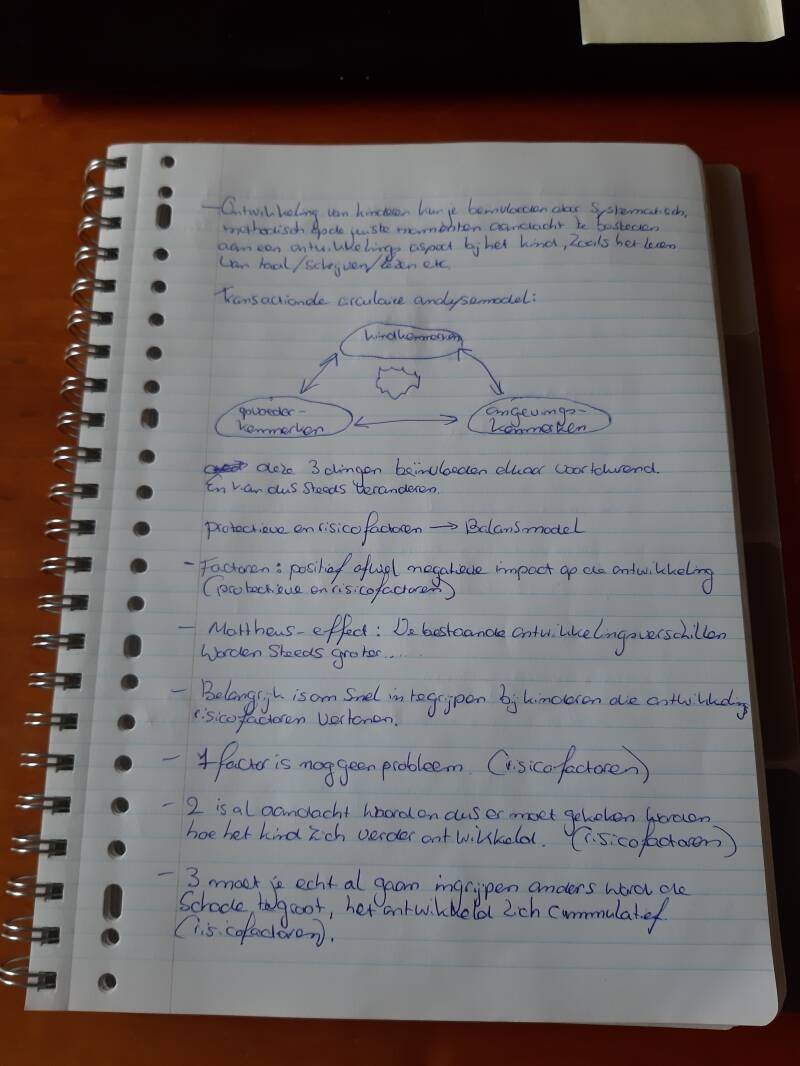 - Ontwikkeling van kinderen kun je beïnvloeden door systematisch,
methodisch op de juiste momenten aandacht te besteden
aan een ontwikkelings aspect bij het kind, zoals het leren
van taal/schrijven/lezen etc.
Transactionele circulaire analysemodel:
kindkenmerken
opvoeder-
kenmerken
omgevings-
kenmerken
deze 3 dingen beïnvloeden elkaar voortdurend.
En kan dus steeds veranderen.
protectieve en risicofactoren → Balansmodel
- Factoren: positief ofwel negatieve impact op de ontwikkeling
(protectieve en risicofactoren)
- Mattheus-effect: De bestaande ontwikkelingsverschillen
worden steeds groter....
- Belangrijk is om snel in te grijpen bij kinderen die ontwikkeling
risicofactoren vertonen.
- 1 factor is nog geen probleem. (risicofactoren)
- 2 is al aandacht voor dus er moet gekeken worden
hoe het kind zich verder ontwikkeld. (risicofactoren)
- 3 moet je echt al gaan ingrijpen anders word de
schade te groot, het ontwikkeld zich cummulatief.
(risicofactoren).